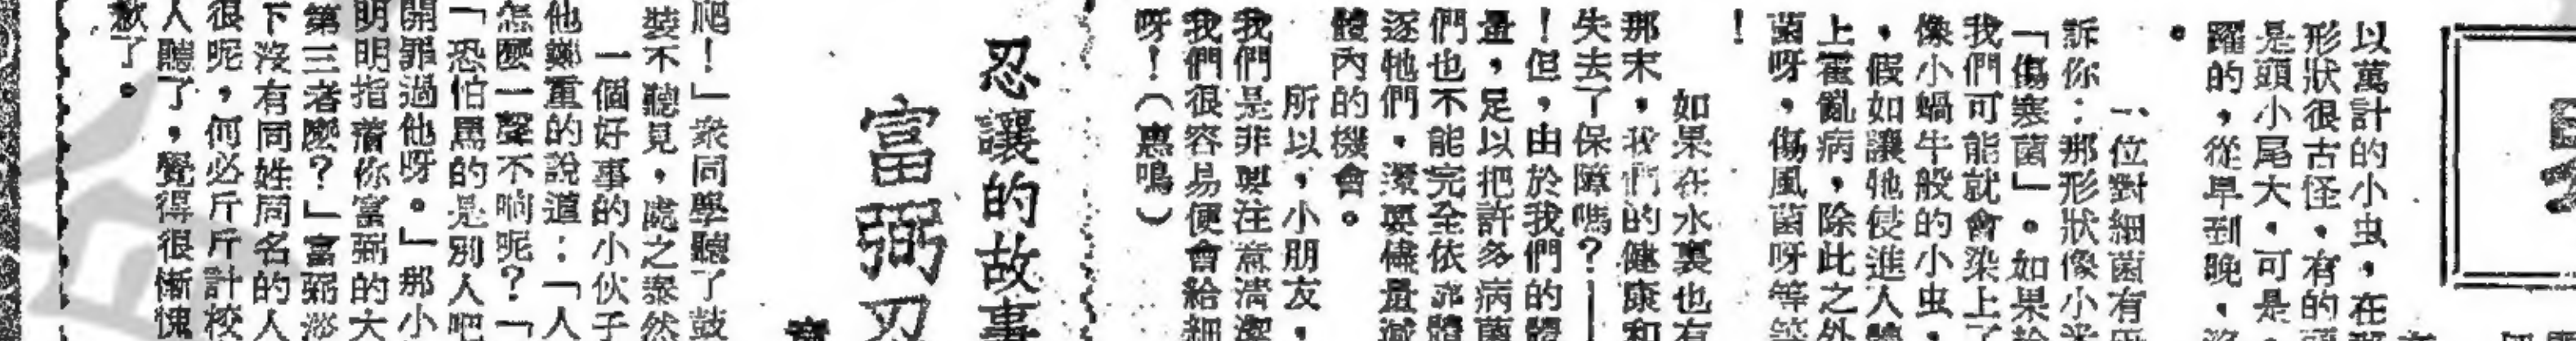 以萬計的小虫，在
形狀很古怪，有的
是頭小尾大，可是
躍的，從早到晚，
。
一位對細菌有
訴你：那形狀像小米
「傷寒菌」。如果給
我們可能就會染上了
像小蝸牛般的小虫，
，假如讓牠侵進人體
上霍亂病，除此之外
菌呀，傷風菌呀等等
！
如果在水裏也有
那末，我們的健康和
失去了保障嗎？——
！但，由於我們的體
量，足以把許多病菌
們也不能完全依靠體
逐牠們，還要儘量減
體內的機會。
所以，小朋友，
我們是非要注意清潔
我們很容易便會給細
呀！（惠鳴）
忍讓的故事
富弼忍
爬！」衆同學聽了鼓
裝不聽見，處之泰然
一個好事的小伙子
他鄭重的說道：「人
怎麼一聲不响呢？「
「恐怕罵的是別人吧
開罪過他呀。」那小
明明指着你富弼的大
第三者麼？」富弼淡
下沒有同姓同名的人
很呢，何必斤斤計校
人聽了，覺得很慚愧
歉了。